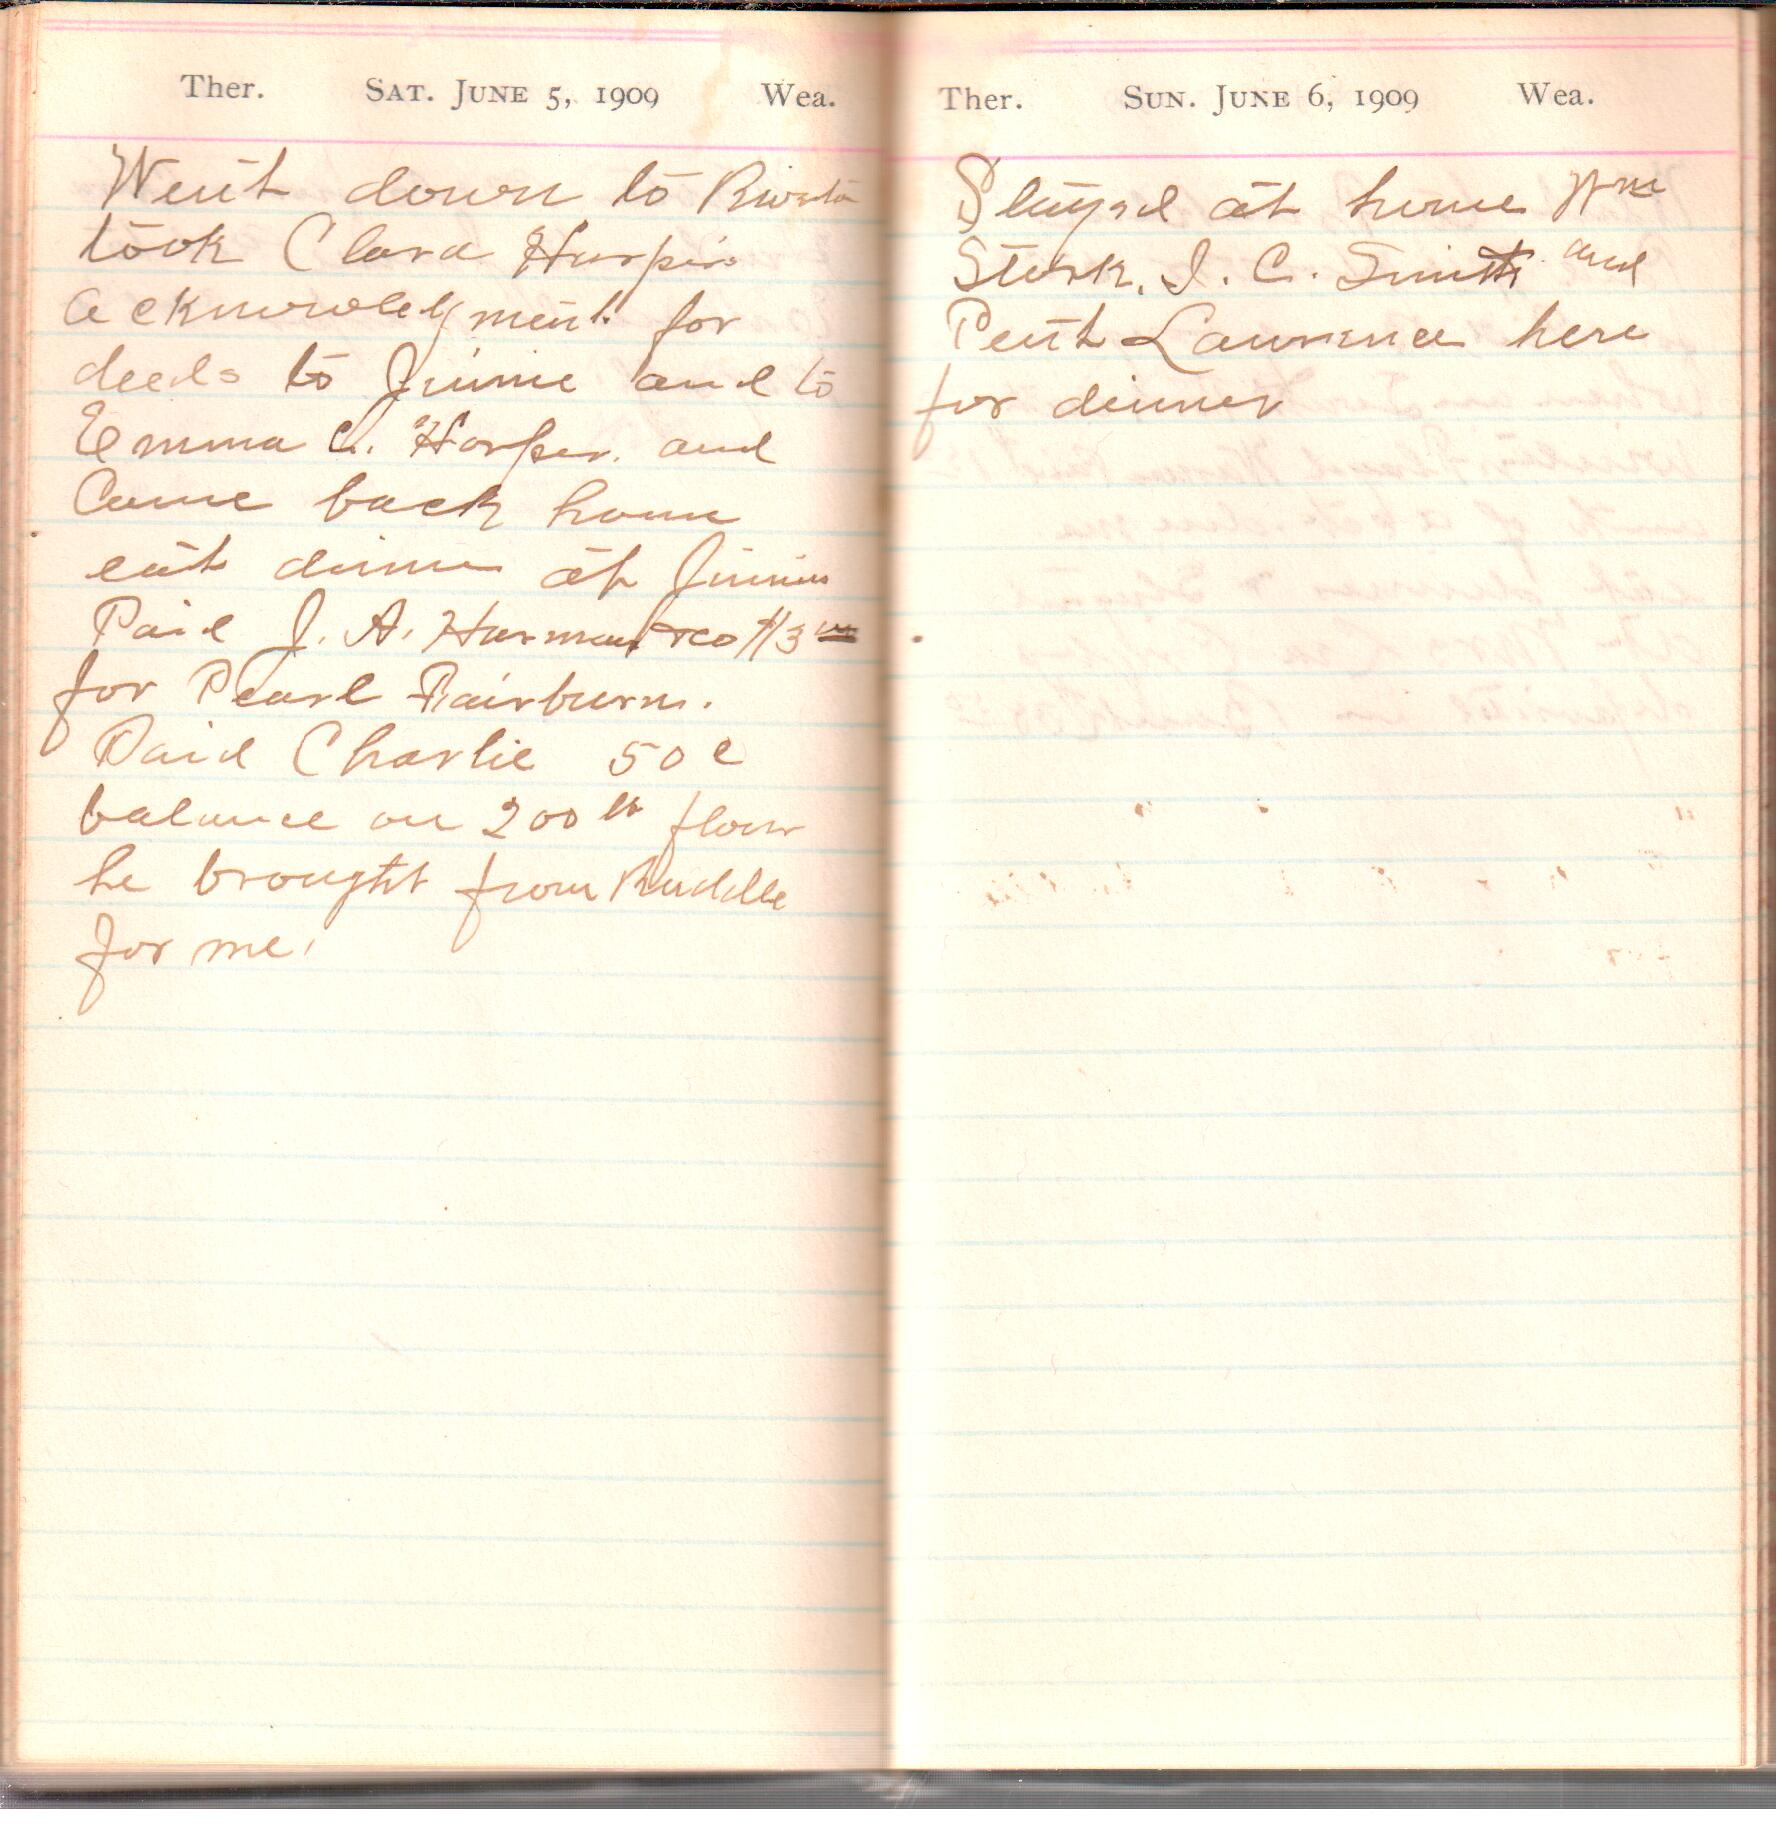 Ther. SAT. JUNE 5, 1909 Wea.
Went down to
took Clara Harper
acknowledgment for
deeds to Jinnie and to
Emma C. Harper. and
Came back home
eat dinner at Jinnies
Paid J. A. Harman & co $13 00
for Pearl Fairburn.
Paid Charlie 50 c
balance on 200 lb flour
he brought from Ruddle
for me.
Ther. SUN. JUNE 6, 1909 Wea.
Stayed at home Wm
I. C. Smith and
Lawrence here
for dinner